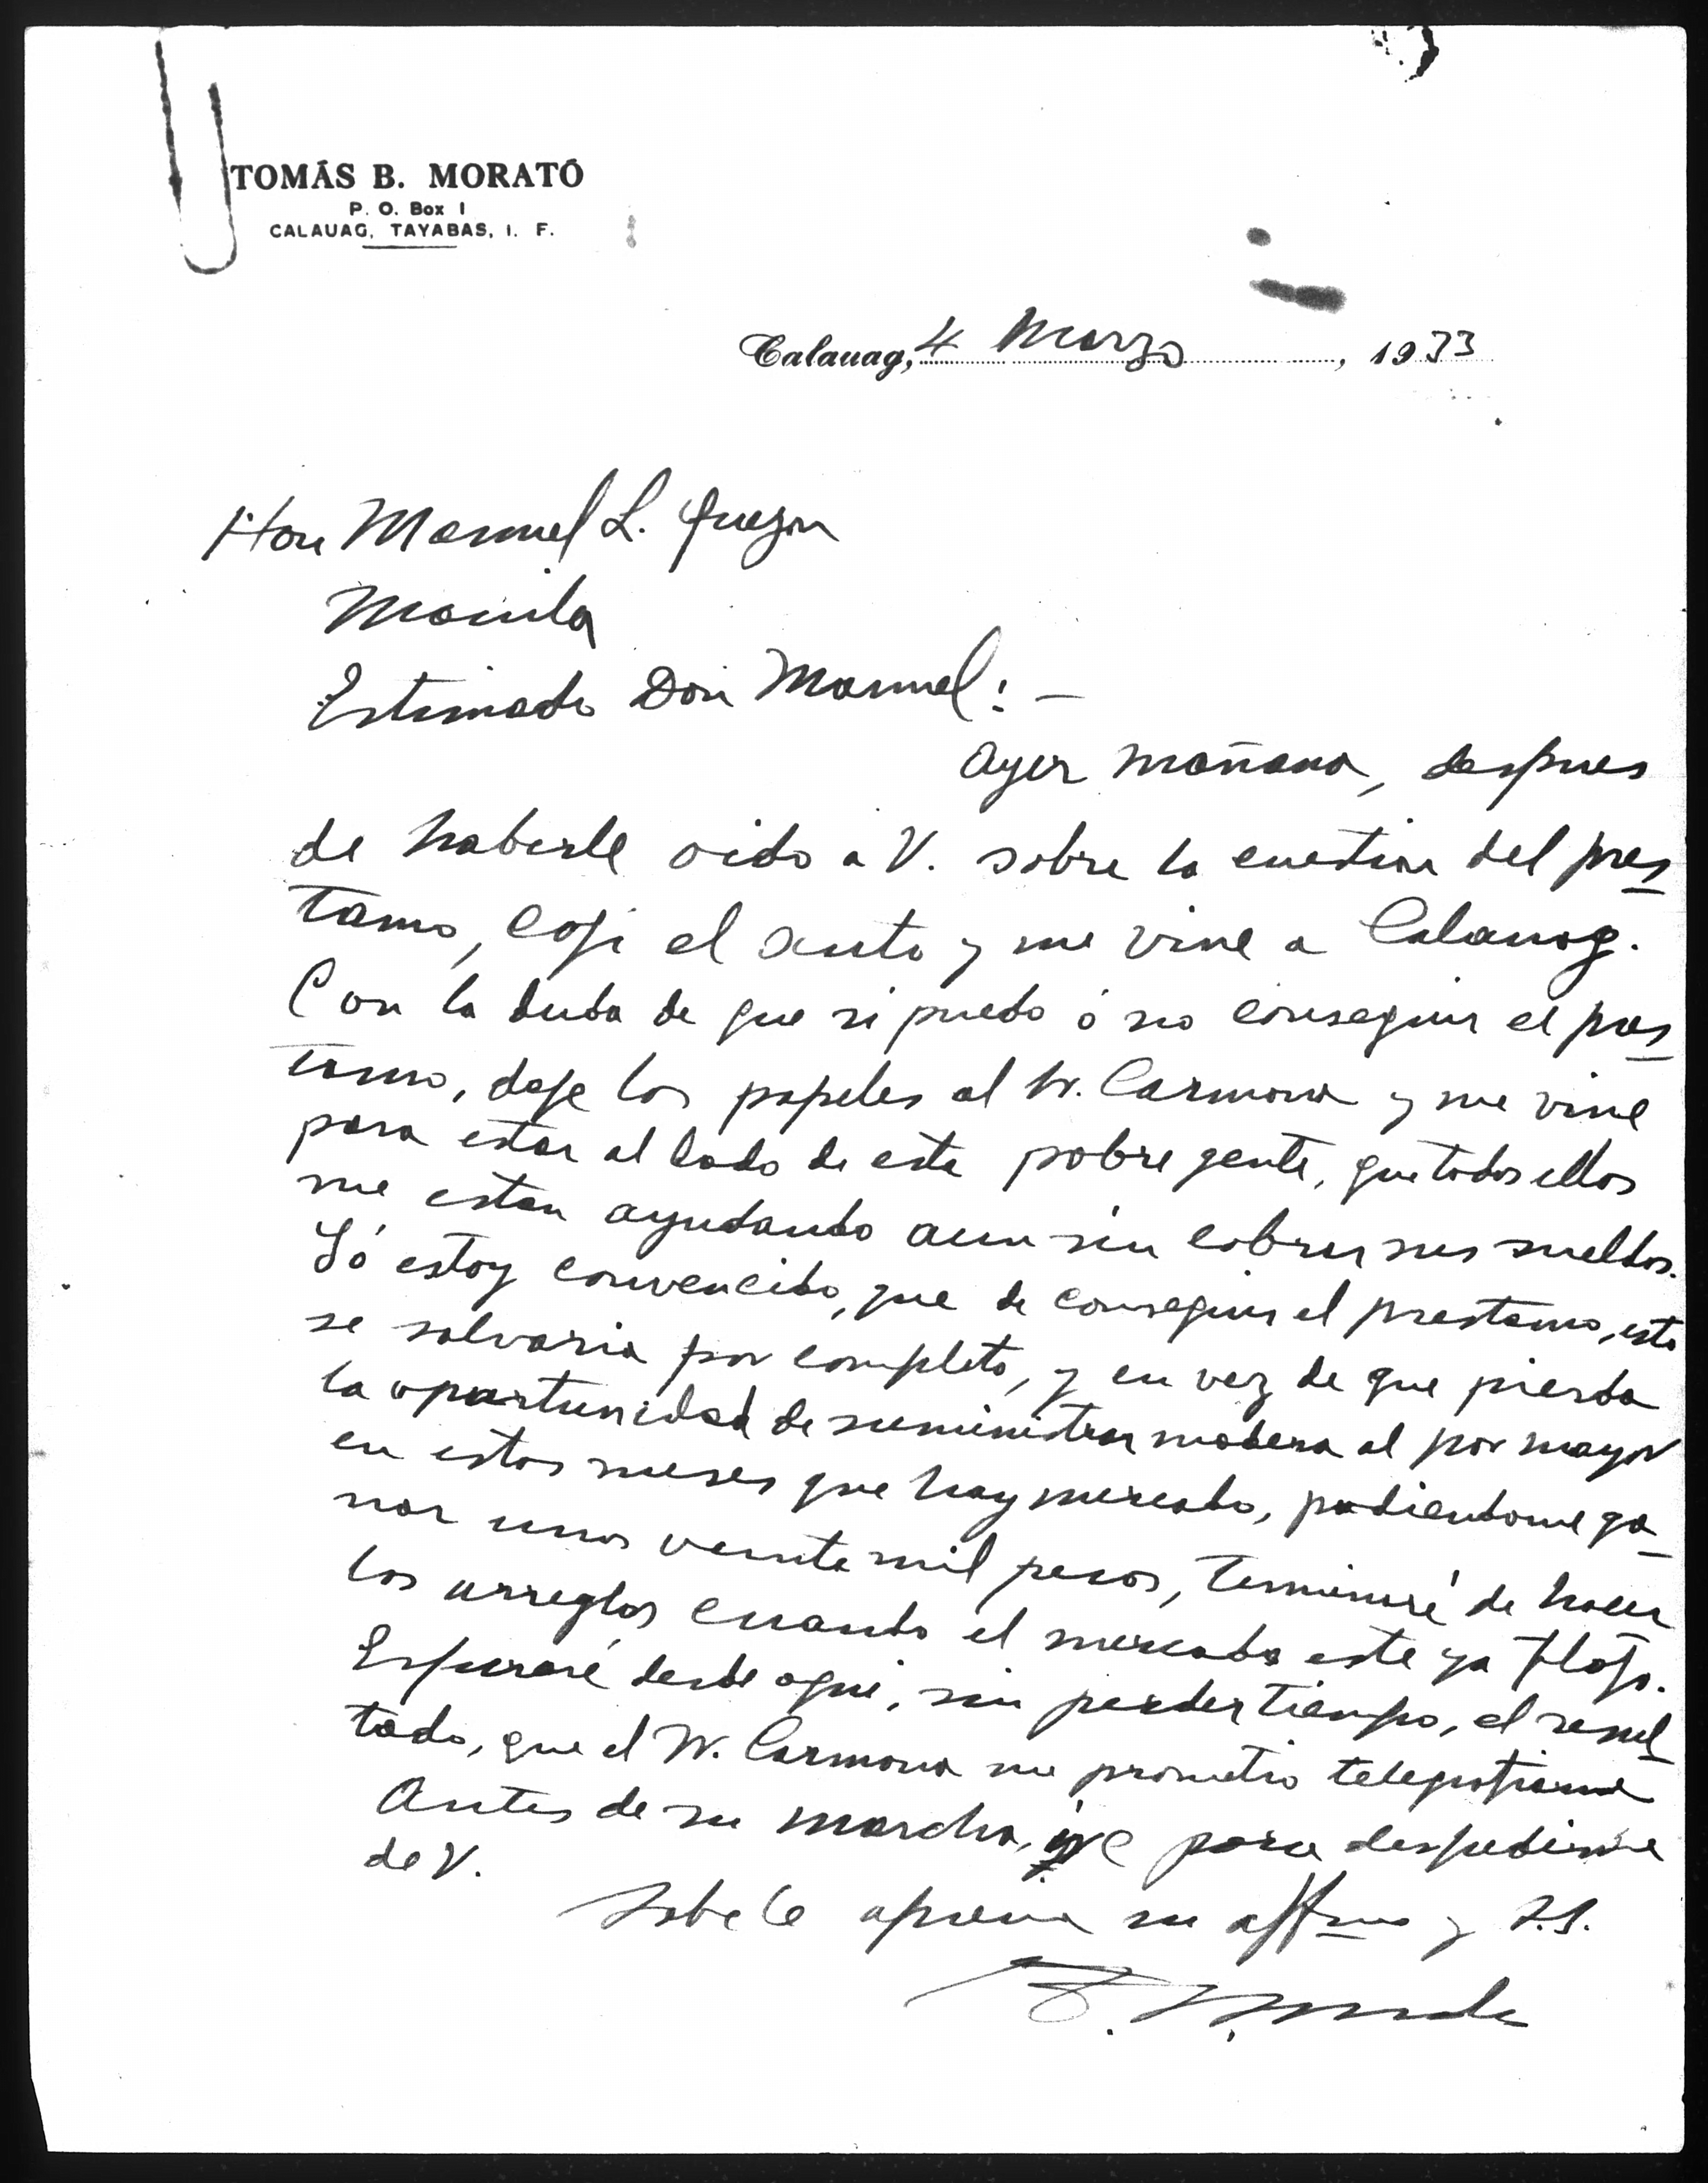 TOMÁS B. MORATÓ
P. O. Box 1
CALAUAG, TAYABAS, I. F.
Calauag, 4 Marzo, 1933
Hon Manuel L. Quezon
Manila
Estimado Don Manuel: —
Ayer mañana, despues
de haberle oido a V. sobre la cuestion del pres
tamo, coji el auto y me vine a Calauag.
Con la duda de que si puedo ó no conseguir el pres
tamo, deje los papeles al Sr. Carmona y me vine
para estar al lado de esta pobre gente, que todos ellos
me estan ayudando aun sin cobrar sus sueldos.
Yó estoy convencido, que de conseguir el prestamo, esto
se salvaria por completo, y en vez de que pierda
la oportunidad de suministrar madera al por mayor
en estos meses que hay mercado, pudiendome ga
nar unos veinte mil pesos, terminaré de hacer
los arreglos cuando el mercado este ya flojo.
Esperaré desde aqui, sin perder tiempo, el resul
tado, que el Sr. Carmona me prometio telegrafiarme
Antes de su marcha, iré para despedirme
de V.
Sabe le aprecia su affmo y S.S.
T. Morato